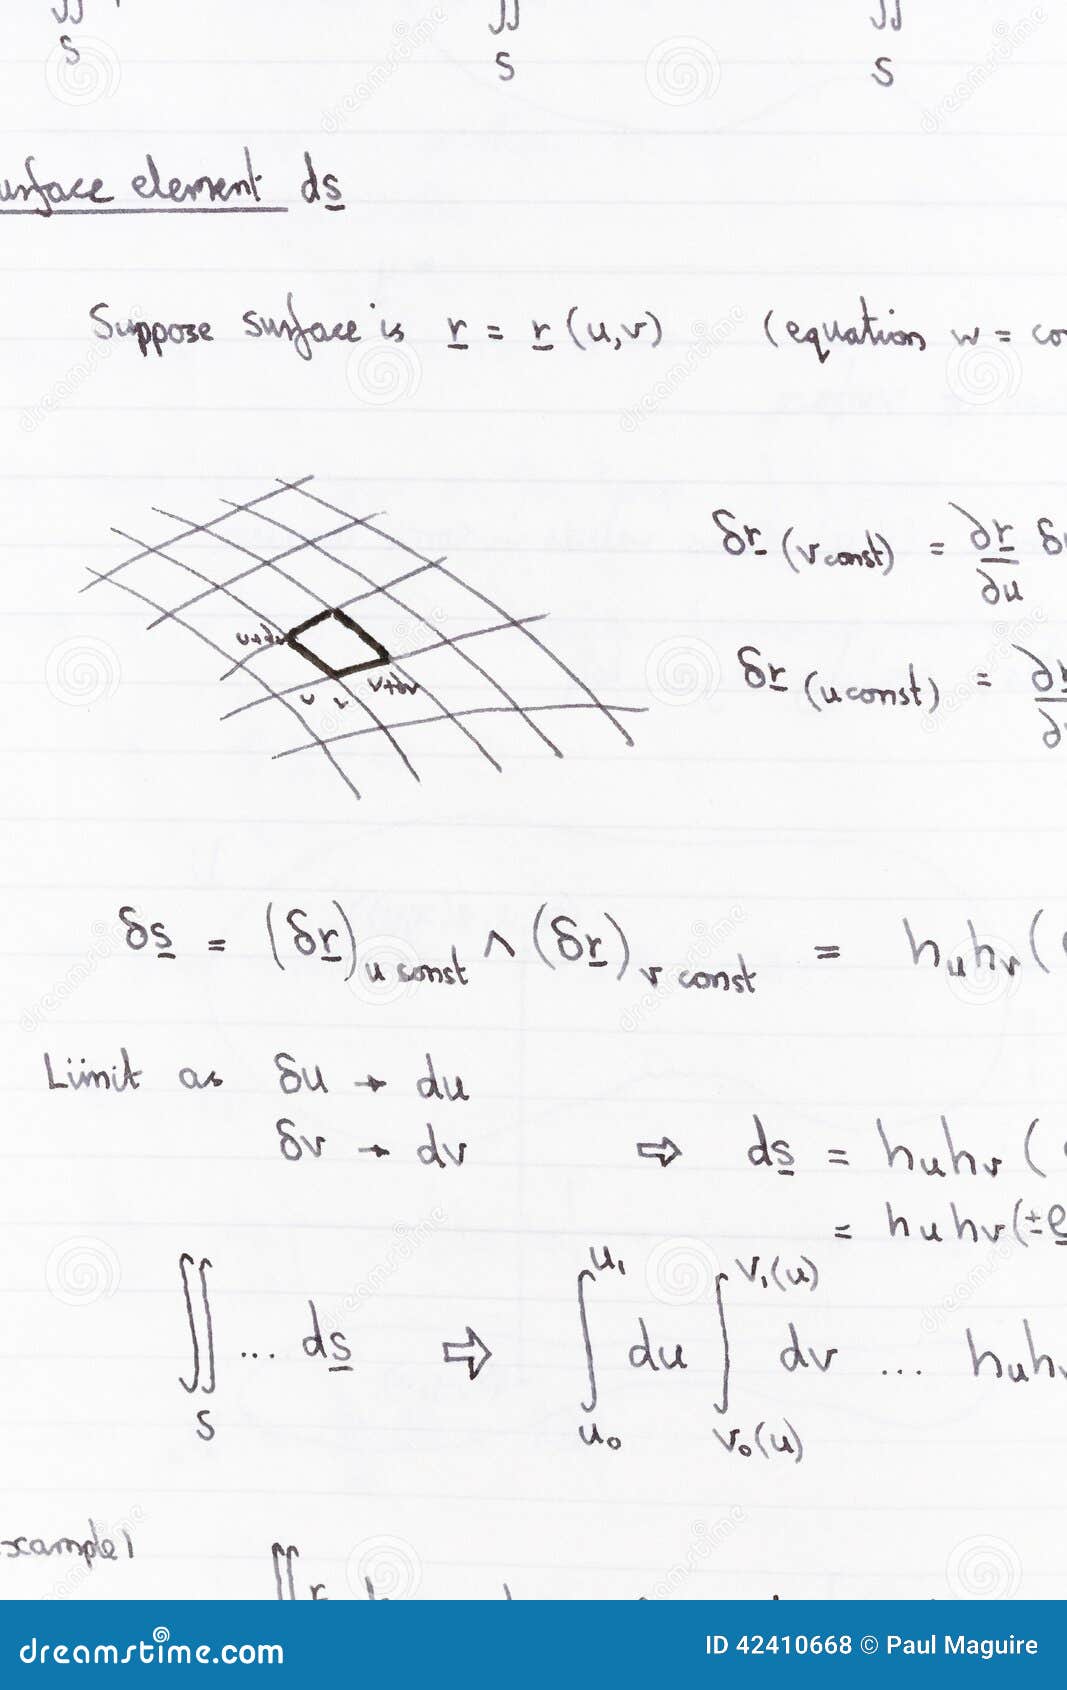 ∬ ∬ ∬
S S S
urface element ds
Suppose surface is r = r (u,v) (equation w = co
δr (v const) = ∂r/∂u δu
δr (u const) = ∂r/∂
u+du
v+dv
u v
δs = (δr)u const ∧ (δr)v const = huhv (
Limit as δu → du
δv → dv ⇒ ds = huhv (
= huhv (±e
∬S ... ds ⇒ ∫u₀^u₁ du ∫v₀(u)^v₁(u) dv ... huhv
xample 1
∬
dreamstime.com
ID 42410668 © Paul Maguire